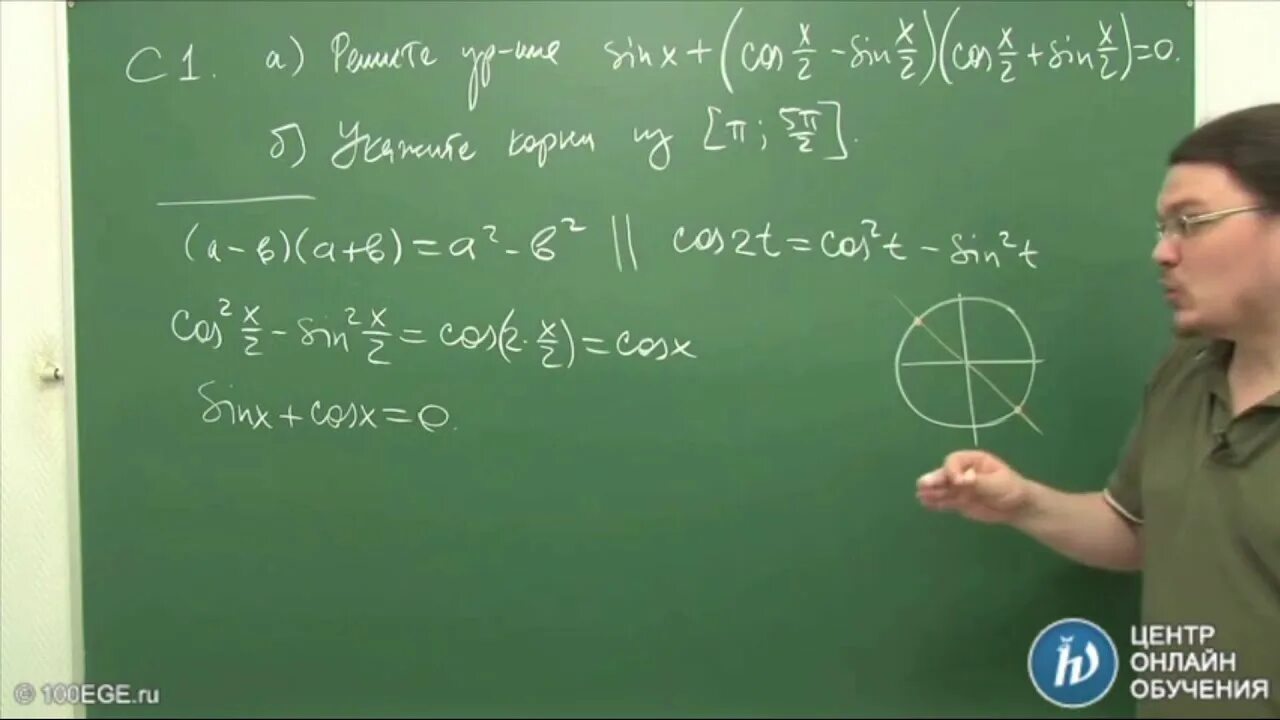 С1. а) Решите ур-ние sinx + (cos x/2 - sin x/2)(cos x/2 + sin x/2) = 0.
б) Укажите корни из [π; 5π/2].
(a-b)(a+b) = a² - b² || cos2t = cos²t - sin²t
cos² x/2 - sin² x/2 = cos(2· x/2) = cosx
sinx + cosx = 0.
© 100EGE.ru
ЦЕНТР
ОНЛАЙН
ОБУЧЕНИЯ